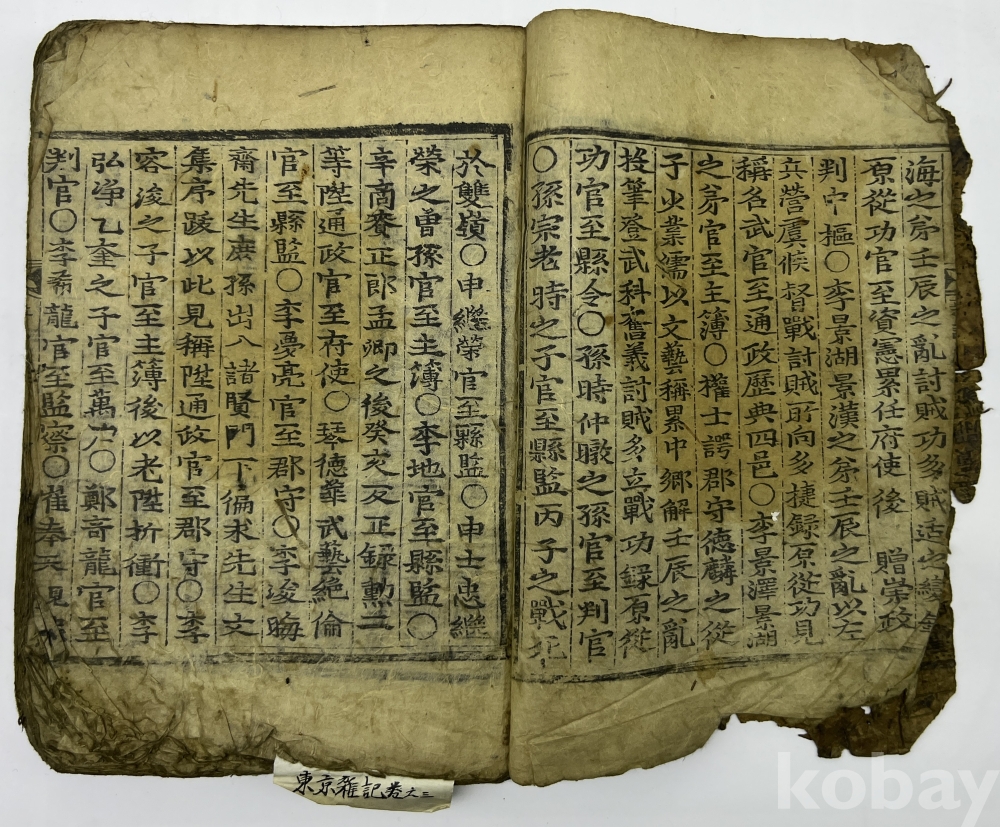 海之弟壬辰之亂討賊功多賊适之
原從功官至資憲累任府使後 贈崇政
判中樞○李景湖景漢之弟壬辰之亂以左
兵營虞候督戰討賊所向多捷録原從功見
稱名武官至通政歷典四邑○李景澤景湖
之弟官至主簿○權士諤郡守德麟之從
子少業儒以文藝稱累中鄉解壬辰之亂
投筆登武科奮義討賊多立戰功録原從
功官至縣令○孫時仲暾之孫官至判官
○孫宗老時之子官至縣監丙子之戰死
於雙嶺○申繼榮官至縣監○申士忠繼
榮之曾孫官至主簿○李地官至縣監○
辛商賚正郎孟卿之後癸亥反正録勳三
等陞通政官至府使○琴德華武藝絶倫
官至縣監○李夢亮官至郡守○李浚晦
齋先生庶孫出入諸賢門下徧求先生文
集序跋以此見稱陞通政官至郡守○李
容浚之子官至主簿後以老陞折衝○李
弘淨乙奎之子官至萬戶○鄭奇龍官至
判官○李希龍官至監察○崔奉天見
東京雜記卷之三
kobay